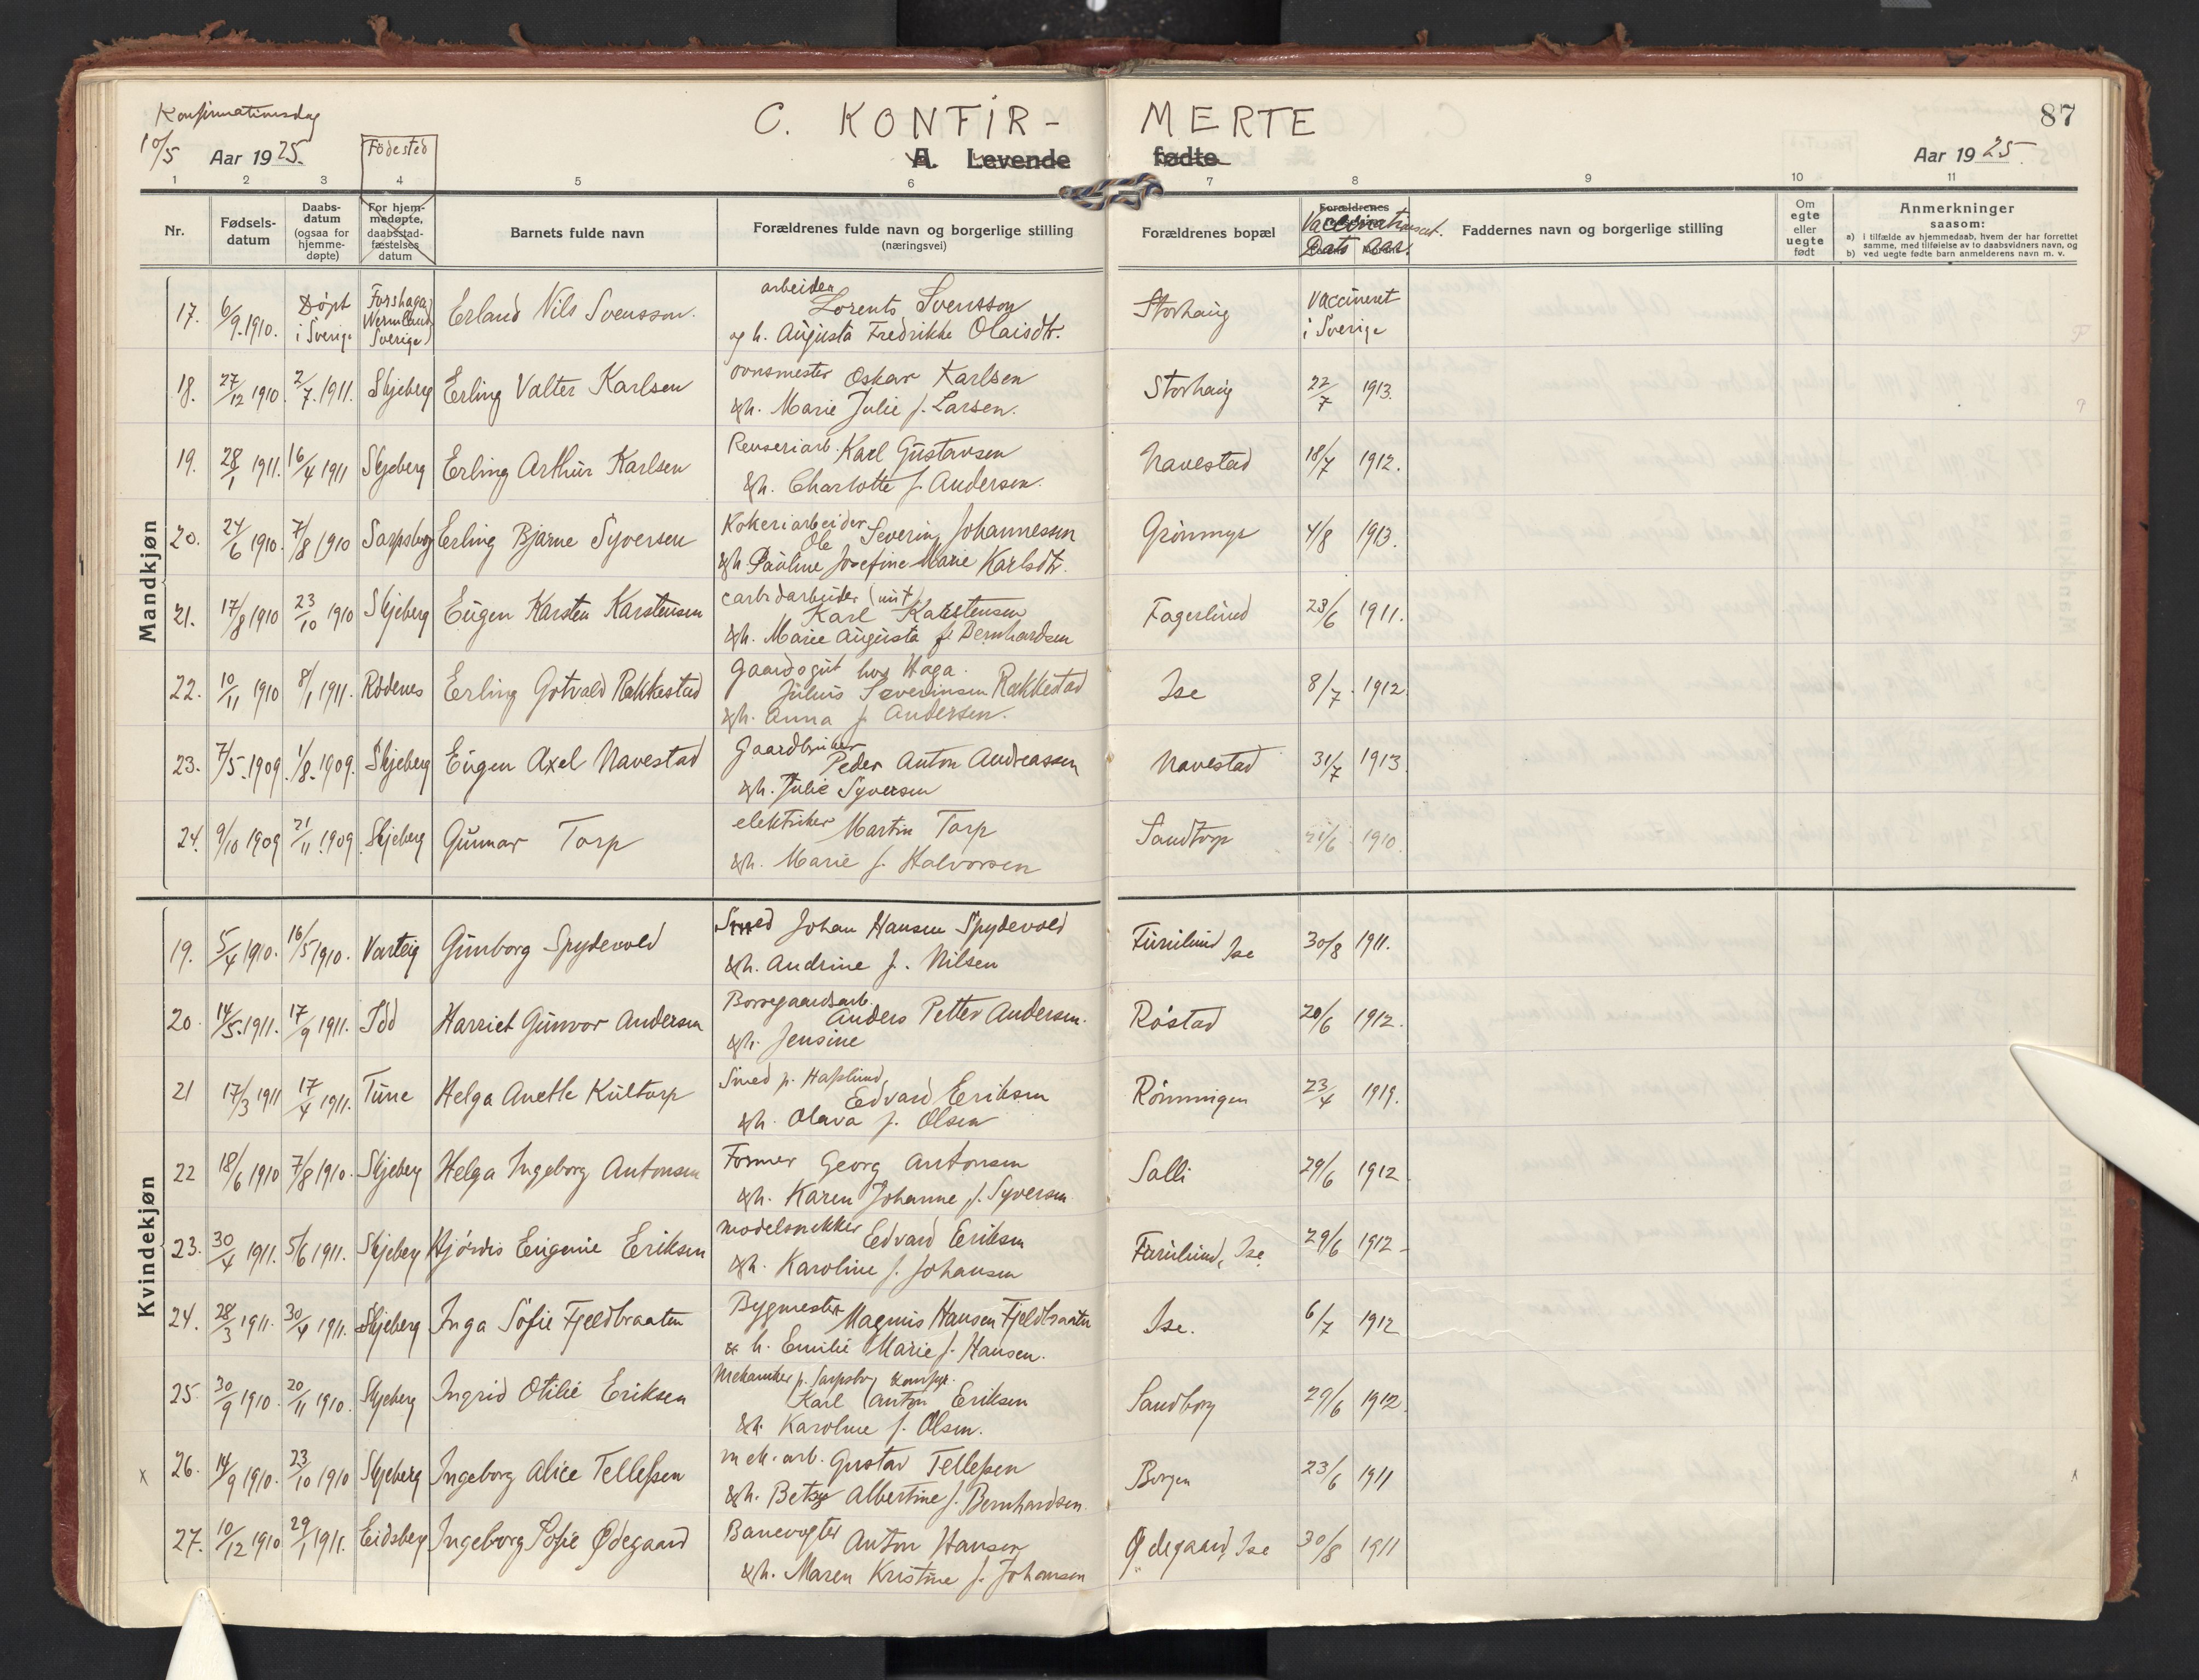 Konfirmationsdag
10/5 Aar 1925.
Födested
C. KONFIR- MERTE
A. Levende fødte
87
Aar 1925.
1 2 3 4 5 6 7 8 9 10 11
Nr.
Fødsels-
datum
Daabs-
datum
(ogsaa for
hjemme-
døpte)
For hjem-
medøpte,
daabsstad-
fæstelses
datum
Barnets fulde navn
Forældrenes fulde navn og borgerlige stilling
(næringsvei)
Forældrenes bopæl
Forældrenes
Dato Aar.
Faddernes navn og borgerlige stilling
Om
egte
eller
uegte
født
Anmerkninger
saasom:
a) i tilfælde av hjemmedaab, hvem der har forrettet
samme, med tilføielse av to daabsvidners navn, og
b) ved uegte fødte barn anmelderens navn m. v.
Mandkjøn
17. 6/9. 1910. Døpt i Sverige Forshaga Wermland Sverige Erland Nils Svensson. arbeider Lorents Svensson Storhaug Vaccineret i Sverige
og h. Augusta Fredrikke Olaisdtr.
18. 27/12 1910. 2/7. 1911. Skjeberg Erling Valter Karlsen ovnsmester Oskar Karlsen Storhaug 22/7 1913.
& h. Marie Julie f. Larsen.
19. 28/1 1911. 16/4 1911 Skjeberg Erling Arthur Karlsen Renseriarb. Karl Gustavsen Navestad 18/7 1912.
& h. Charlotte f. Andersen.
20. 24/6 1910. 7/8 1910 Sarpsborg Erling Bjarne Syversen Kokeriarbeider Ole Severin Johannessen Grönmyr 4/8 1913.
& h. Pauline Josefine Marie Karlsdtr.
21. 17/8 1910 23/10 1910 Skjeberg Eugen Karsten Karstensen carbidarbeider Karl Karstensen Fagerlund 23/6 1911.
& h. Marie Augusta f. Bernhardsen
22. 10/11 1910 8/1 1911. Rödenes Erling Gotvald Rakkestad Gaardsgut hos Haga.
Julius Severinsen Rakkestad Ise 8/7. 1912.
& h. Anna f. Andersen.
23. 7/5. 1909. 1/8. 1909. Skjeberg Eugen Axel Navestad Gaardbruker Peder Anton Andreassen Navestad 31/7 1913.
& h. Julie Syversen
24. 9/10 1909 21/11. 1909. Skjeberg Gunnar Torp elektriker Martin Torp Sandtorp 21/6 1910.
& h. Marie f. Halvorsen
Kvindekjøn
19. 5/4 1910. 16/5 1910. Varteig Gunborg Spydevold Smed Johan Hansen Spydevold Furulund Ise 30/8 1911.
& h. Andrine f. Nilsen
20. 14/5. 1911. 17/9 1911. Idd Harriet Gunvor Andersen Borregaardsarb. Anders Petter Andersen. Röstad 20/6 1912.
& h. Jensine
21 17/3 1911 17/4 1911. Tune Helga Anette Kultorp Smed p. Hafslund Edvard Eriksen Rönningen 23/4 1919.
& h. Olava f. Olsen
22 18/6 1910 7/8 1910. Skjeberg Helga Ingeborg Antonsen Former Georg Antonsen Salli 29/6 1912
& h. Karen Johanne f. Syversen
23. 30/4 1911. 5/6 1911. Skjeberg Hjördis Eugenie Eriksen modelsnekker Edvard Eriksen Furulund, Ise. 29/6 1912
& h. Karoline f. Johansen
24. 28/3 1911. 30/4 1911. Skjeberg Inga Sofie Fjeldbraaten Bygmester Magnus Hansen Fjeldbraaten Ise. 6/7 1912
& h. Emilie Marie f. Hansen.
25. 30/9 1910. 20/11 1910. Skjeberg Ingrid Otilie Eriksen Mekaniker p. Sarpsborg
Karl Anton Eriksen Sandborg 29/6 1912.
& h. Karoline f. Olsen.
x 26. 14/9 1910. 23/10 1910 Skjeberg Ingeborg Alice Tellefsen mek. arb. Gustav Tellefsen Borgen 23/6 1911 x
& h. Betsy Albertine f. Bernhardsen.
27. 10/12 1910 29/1 1911. Eidsberg Ingeborg Sofie Ødegaard Banevogter Anton Hansen Ødegaard, Ise 30/8 1911
& h. Maren Kristine f. Johansen